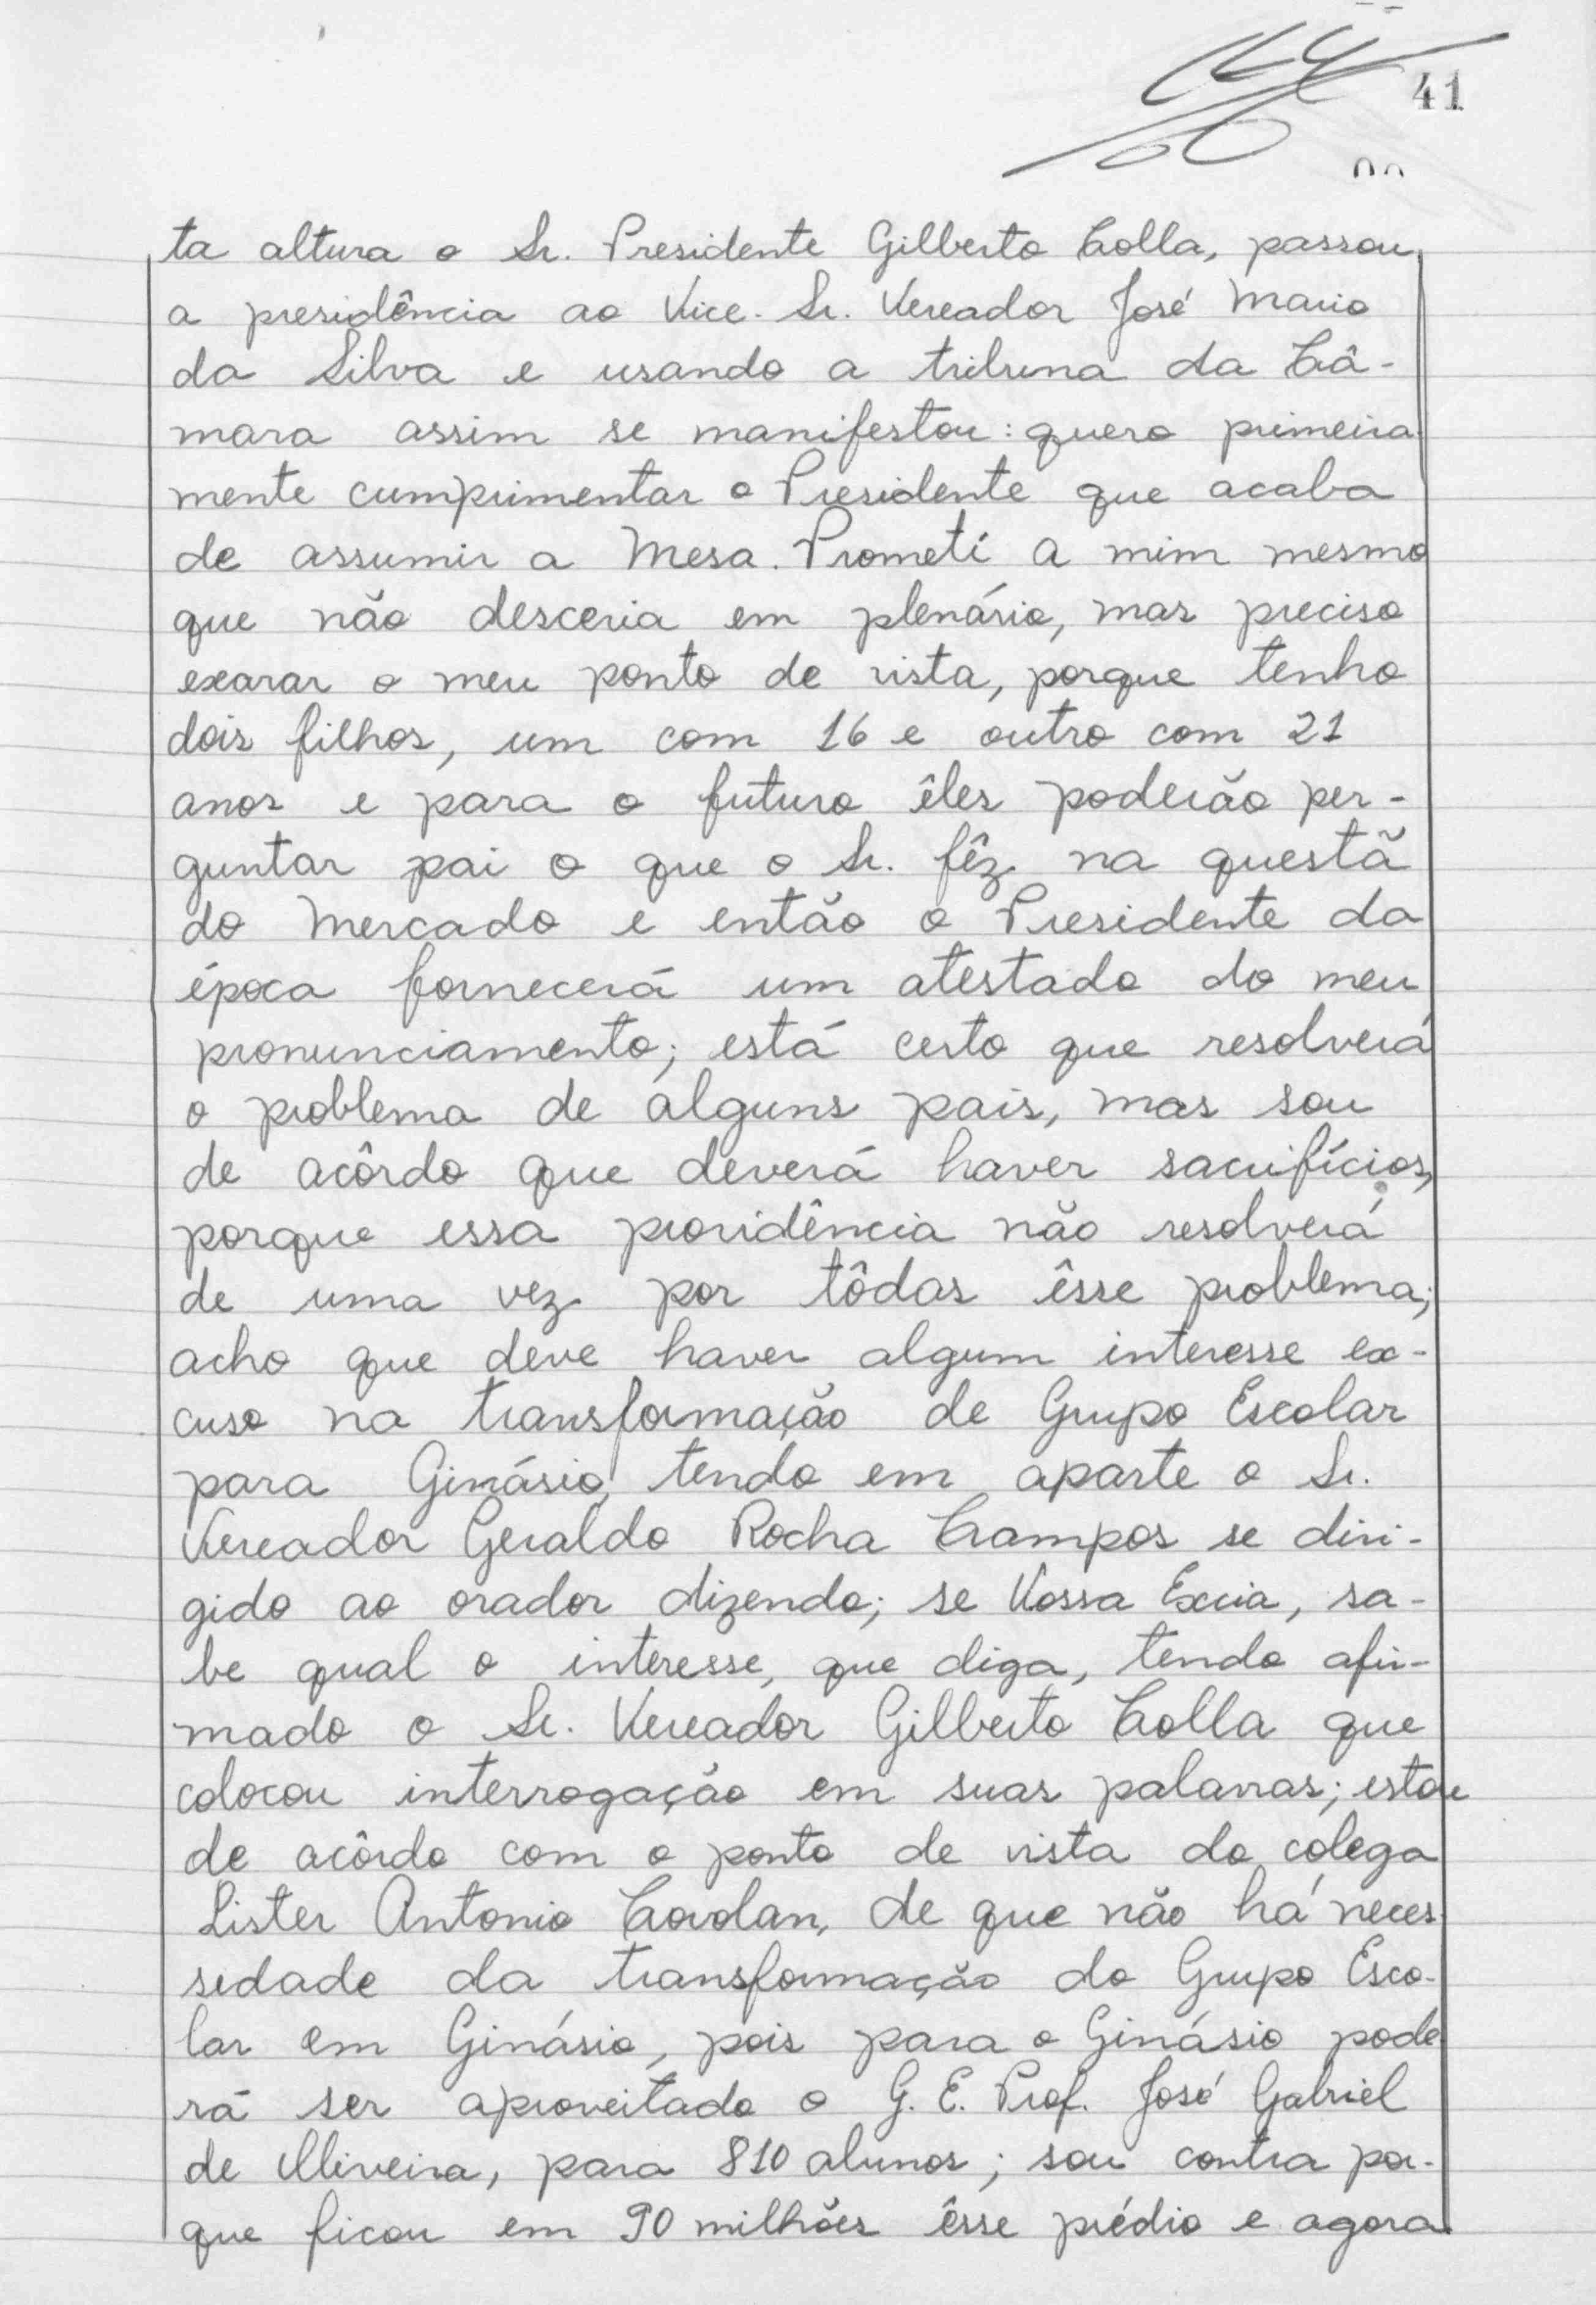 41
ta altura o Sr. Presidente Gilberto Colla, passou
a presidência ao Vice. Sr. Vereador José Mario
da Silva e usando a tribuna da Câ-
mara assim se manifestou: quero primeira
mente cumprimentar o Presidente que acaba
de assumir a Mesa. Prometí a mim mesmo
que não desceria em plenário, mas preciso
exarar o meu ponto de vista, porque tenho
dois filhos, um com 16 e outro com 21
anos e para o futuro êles poderão per-
guntar pai o que o Sr. fêz na questã
do Mercado e então o Presidente da
época fornecerá um atestado do meu
pronunciamento; está certo que resolverá
o problema de alguns pais, mas sou
de acôrdo que deverá haver sacrifícios,
porque essa providência não resolverá
de uma vez por tôdas êsse problema;
acho que deve haver algum interesse ex-
cuso na transformação de Grupo Escolar
para Ginásio, tendo em aparte o Sr.
Vereador Geraldo Rocha Campos se diri-
gido ao orador dizendo; se Vossa Excia, sa-
be qual o interesse, que diga, tendo afir-
mado o Sr. Vereador Gilberto Colla que
colocou interrogação em suas palavras; estou
de acôrdo com o ponto de vista do colega
Lister Antonio Cordan, de que não há neces
sedade da transformação do Grupo Esco-
lar em Ginásio, pois para o Ginásio pode
rá ser aproveitado o G. E. Prof. José Gabriel
de Oliveira, para 810 alunos; sou contra por-
que ficou em 90 milhões êsse prédio e agora